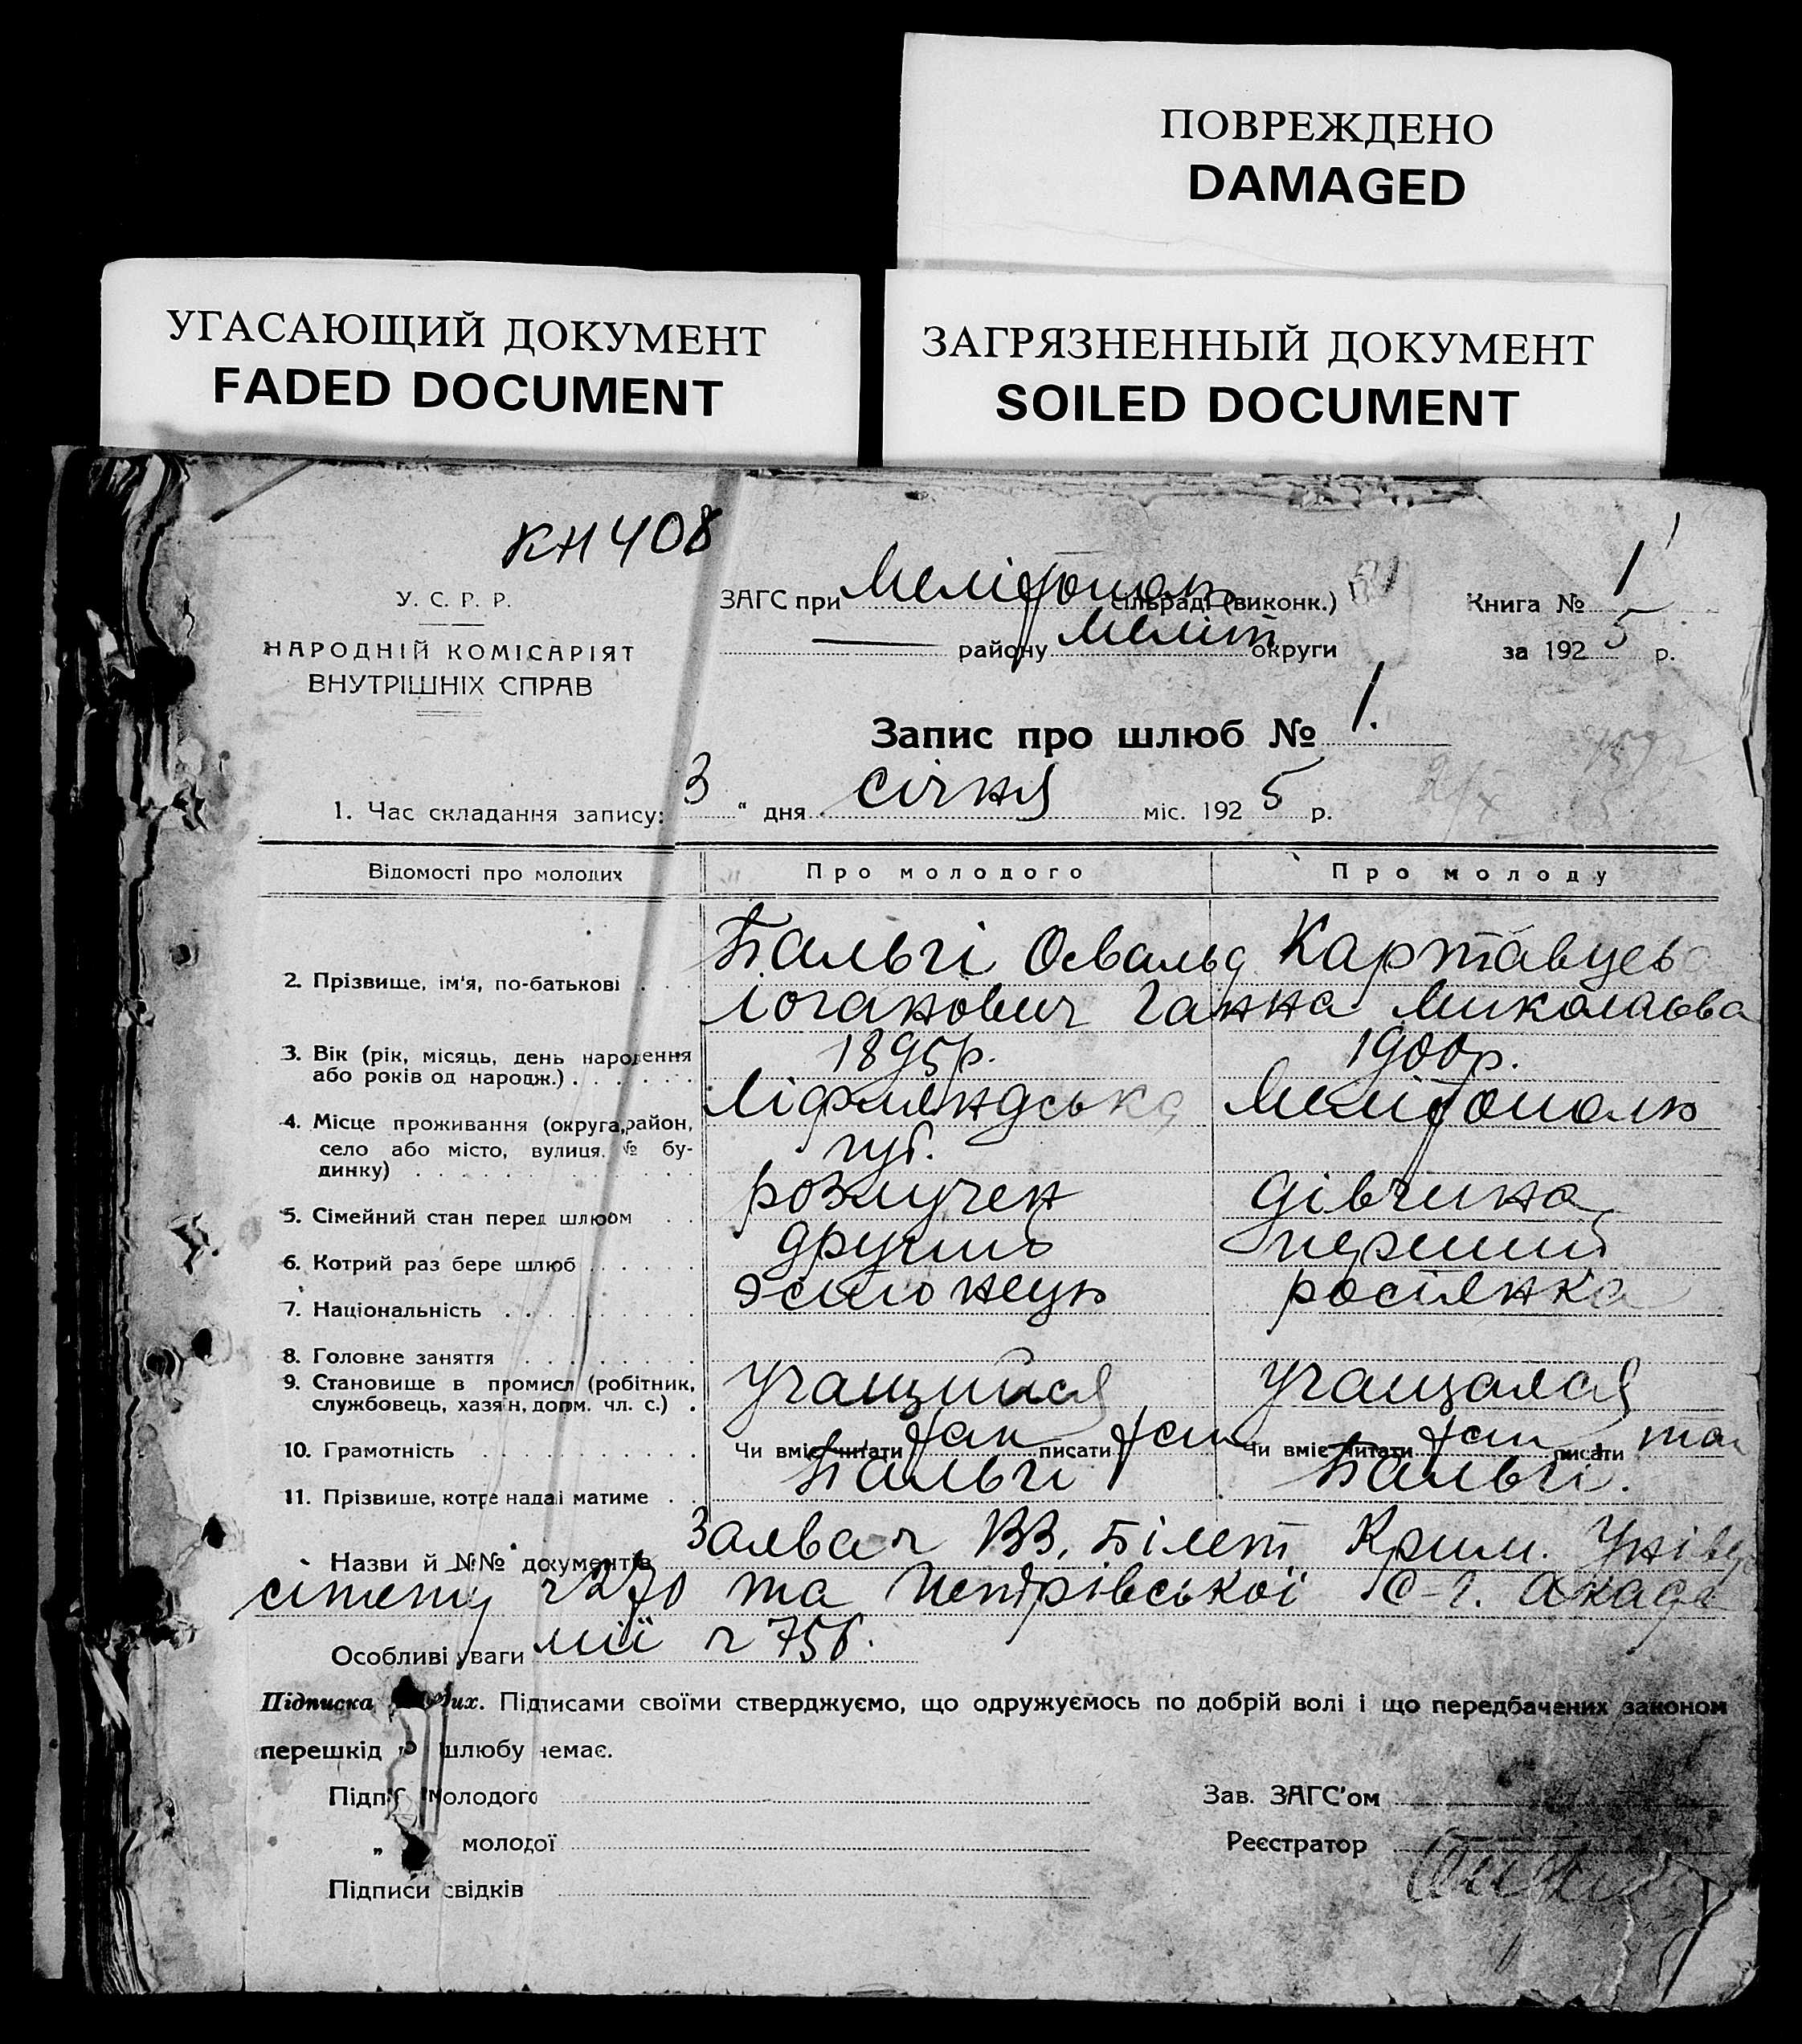 ПОВРЕЖДЕНО
DAMAGED
УГАСАЮЩИЙ ДОКУМЕНТ
FADED DOCUMENT
ЗАГРЯЗНЕННЫЙ ДОКУМЕНТ
SOILED DOCUMENT
КН 408
1
У. С. Р. Р.
НАРОДНІЙ КОМІСАРІЯТ
ВНУТРІШНІХ СПРАВ
ЗАГС при Мелітопол. сільраді (виконк.)
— району Меліт округи
Книга № 1
за 1925 р.
Запис про шлюб № 1.
1. Час складання запису: 3 " дня січня міс. 1925 р.
Відомості про молодих Про молодого Про молоду
2. Прізвище, ім'я, по-батькові Бальгі Освальд Картавцева
Іоганович Ганна Миколаєва
3. Вік (рік, місяць, день народення 1895р. 1900р.
або років од народж.)
4. Місце проживання (округа, район, Ліфляндська Мелітополь
село або місто, вулиця, № бу- губ.
динку)
5. Сімейний стан перед шлюбом розлучен дівчина
6. Котрий раз бере шлюб другий перший
7. Національність эстонець росіянка
8. Головне заняття
9. Становище в промисл (робітник, учащийся учащаяся
службовець, хазяїн, допм. чл. с.)
10. Грамотність Чи вміє читати так писати так Чи вміє читати так писати так
11. Прізвище, котре надалі матиме Бальгі Бальгі.
Назви й №№ документів ВЗ, Білет Крим. Універ
сітету ч 270 та Петрівської С-г. Акаде
Особливі уваги мії ч 756.
Підписка Підписами своїми стверджуємо, що одружуємось по добрій волі і що передбачених законом
перешкід шлюбу немає.
Підпис молодого
Зав. ЗАГС'ом
„ молодої
Реєстратор
Підписи свідків